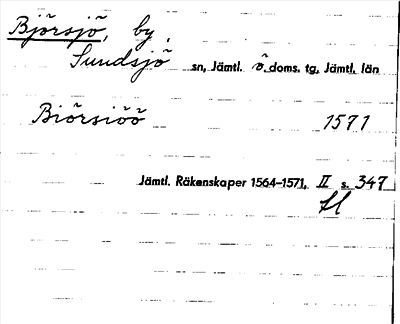 Björsjö, by,
Sundsjö sn, Jämtl. ö. doms. tg, Jämtl. län
Biörsiöö 1571
Jämtl. Räkenskaper 1564-1571, II s. 347